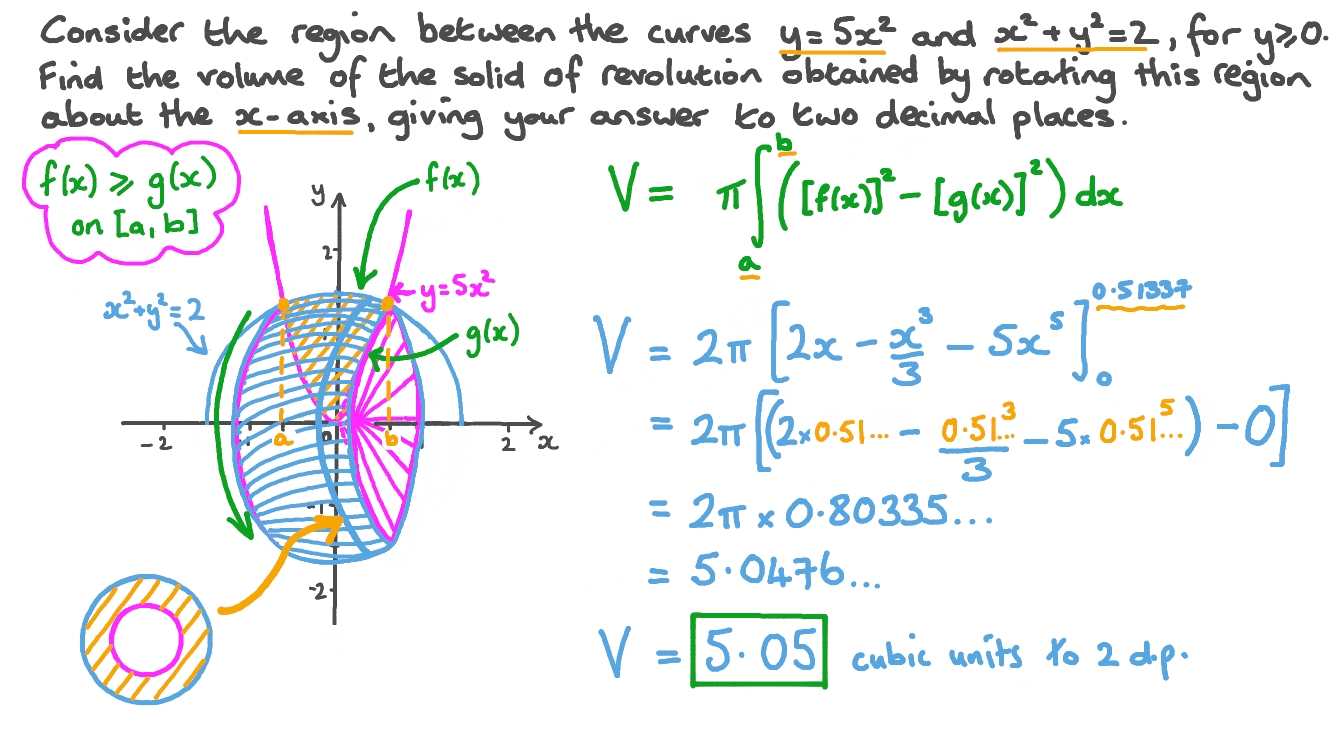 Consider the region between the curves y = 5x² and x² + y² = 2, for y ⩾ 0.
Find the volume of the solid of revolution obtained by rotating this region
about the x-axis, giving your answer to two decimal places.
f(x) ⩾ g(x)
on [a, b]
y
f(x)
2
y = 5x²
x² + y² = 2
g(x)
-2
a
0
b
2
x
-1
-2
V = π ∫ₐᵇ ([f(x)]² - [g(x)]²) dx
V = 2π [2x - x³/3 - 5x⁵]₀^0.51337
= 2π [(2 × 0.51... - 0.51...³/3 - 5 × 0.51...⁵) - 0]
= 2π × 0.80335...
= 5.0476...
V = 5.05 cubic units to 2 d.p.